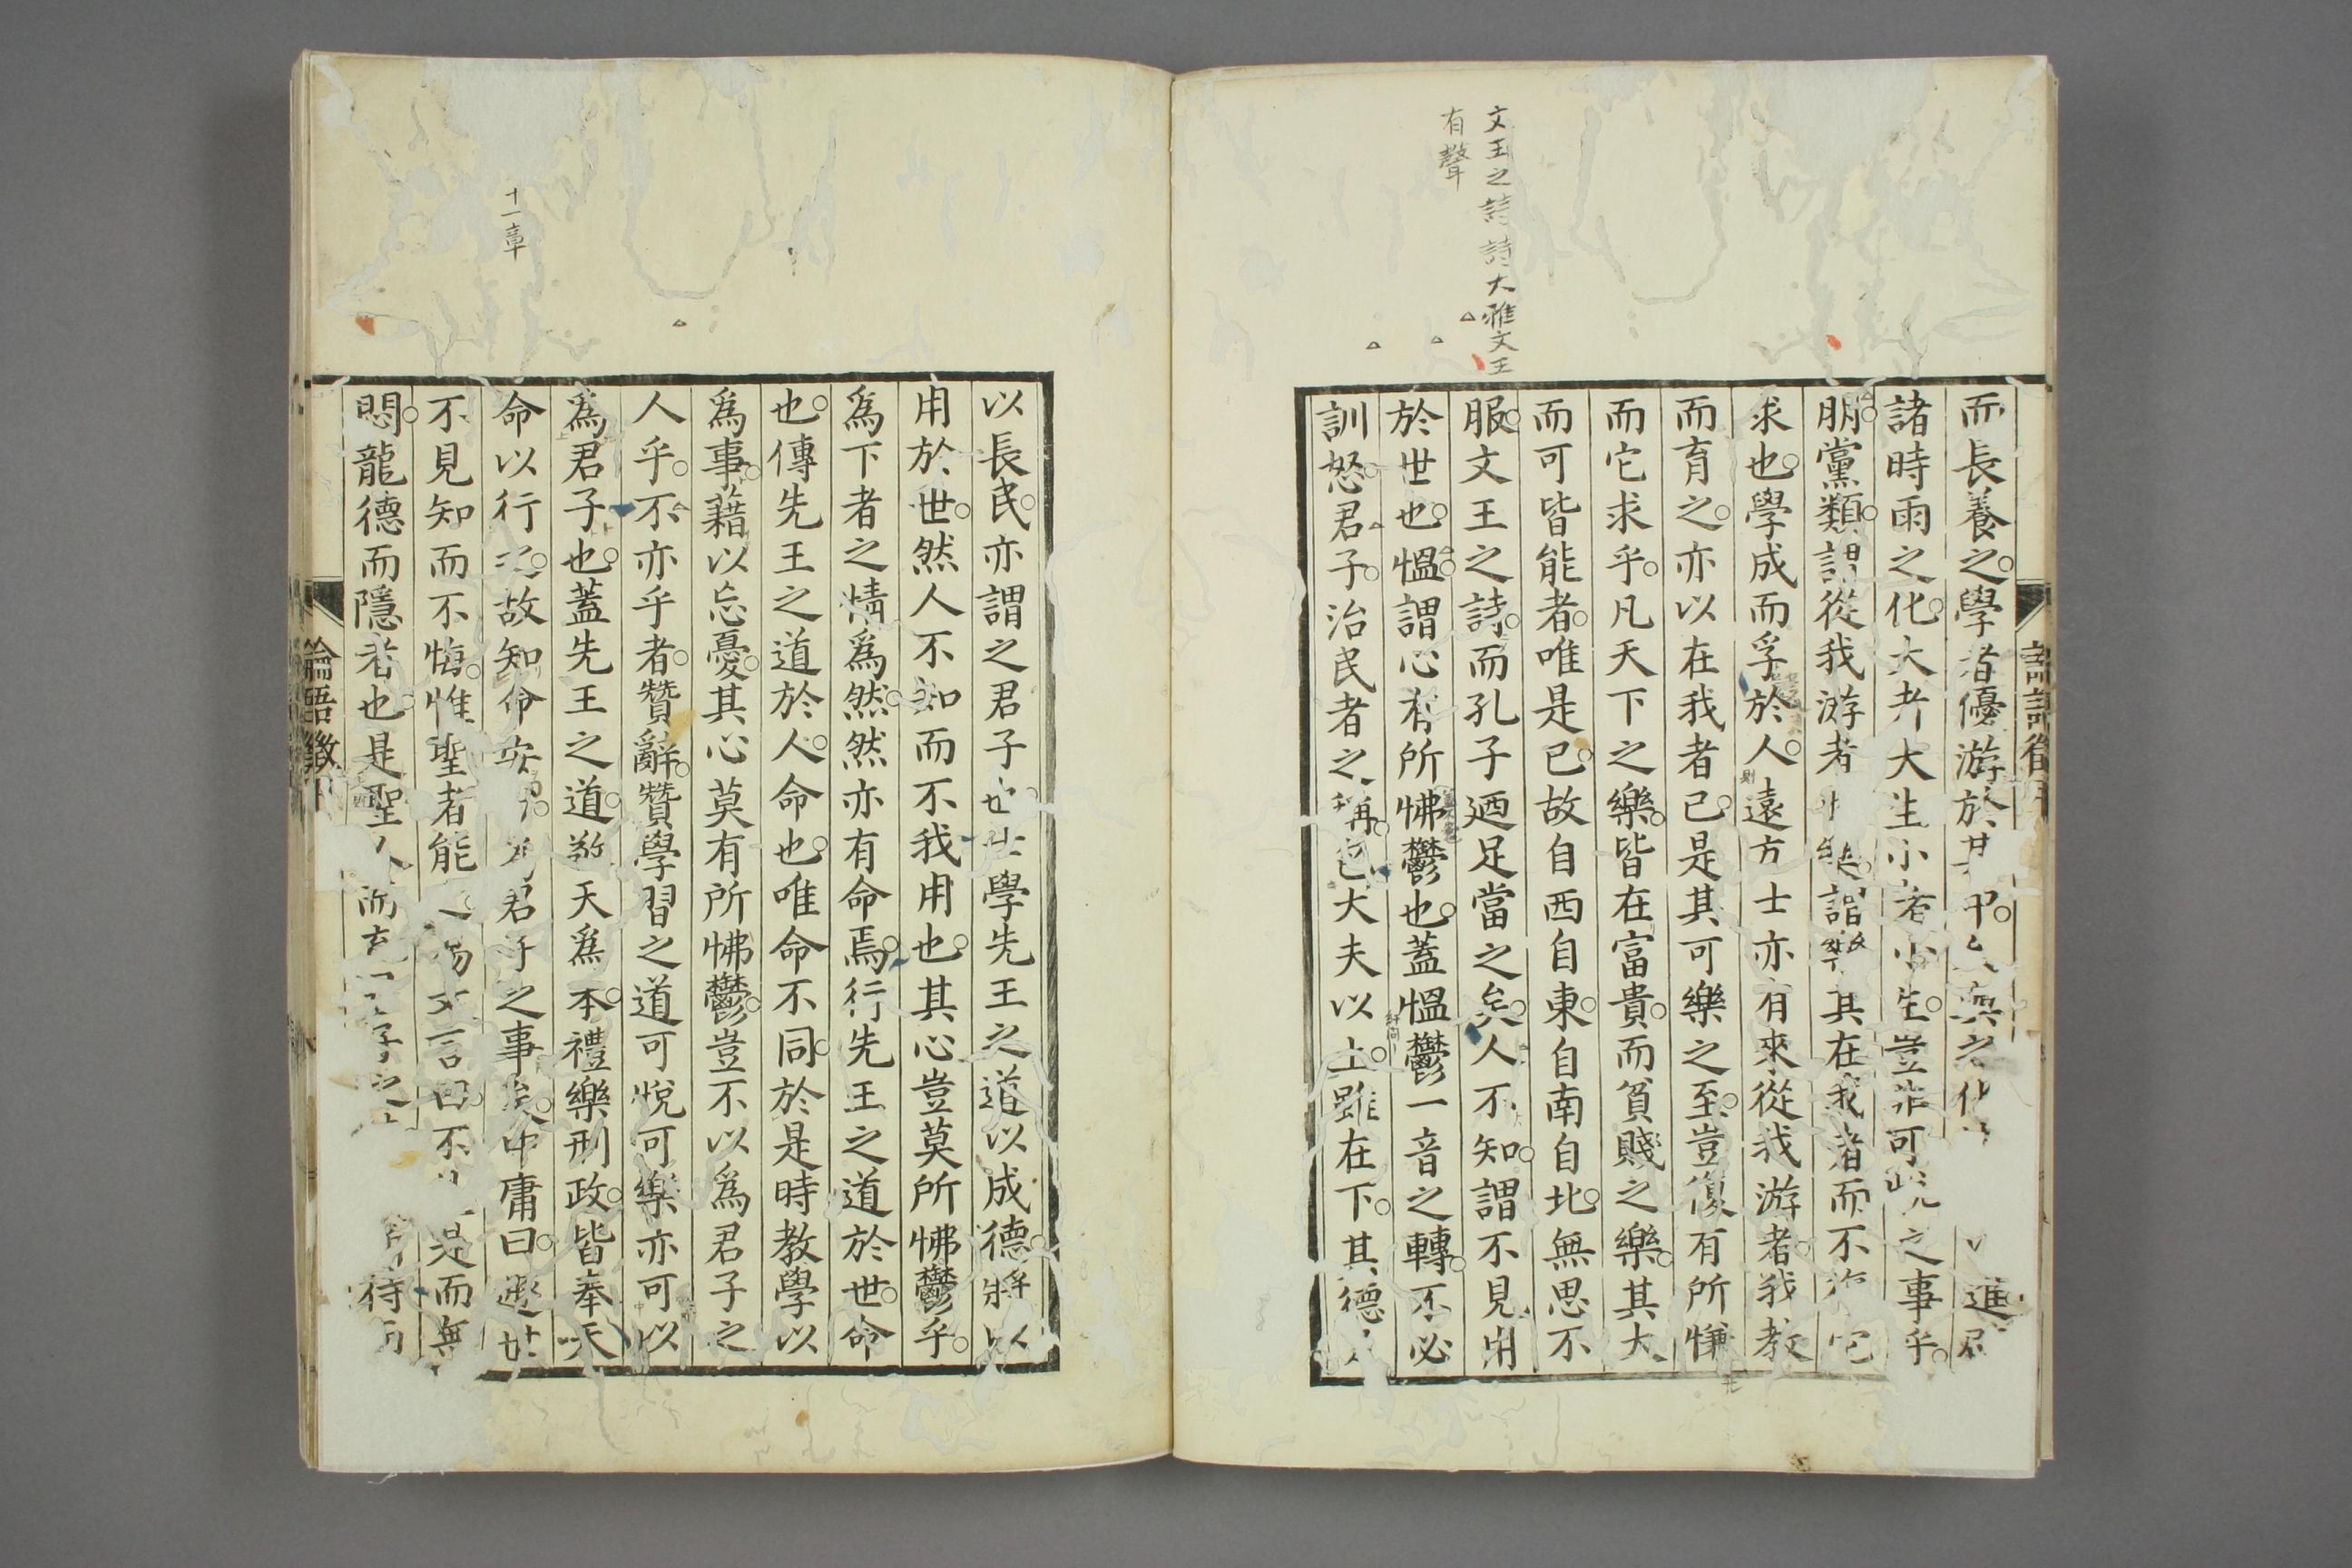 文王之詩詩大雅文王
有聲
而長養之學者優游於其中
諸時雨之化大者大生小者小生豈非可悦之事乎
朋黨類謂從我游者 樂謂樂其在我者而不 它
求也學成而孚於人遠方士亦有來從我游者我教
而育之亦以在我者已是其可樂之至豈復有所慊
而它求乎凡天下之樂皆在富貴而貧賤之樂其大
而可皆能者唯是已故自西自東自南自北無思不
服文王之詩而孔子廼足當之矣人不知謂不見用
於世也慍謂心有所怫鬱也蓋慍鬱一音之轉不必
訓怒君子治民者之稱也大夫以上雖在下其德
十一章
以長民亦謂之君子也 學先王之道以成德將以
用於世然人不知而不我用也其心豈莫所怫鬱乎
為下者之情爲然然亦有命焉行先王之道於世命
也傳先王之道於人命也唯命不同於是時教學以
爲事藉以忘憂其心莫有所怫鬱豈不以爲君子之
人乎不亦乎者贊辭贊學習之道可悅可樂亦可以
爲君子也蓋先王之道敬天爲本禮樂刑政皆奉天
命以行之故知命安 君子之事矣中庸曰遯世
不見知而不悔惟聖者能 易文言曰不 是而無
悶龍德而隱者也是聖人所 待
論語徵